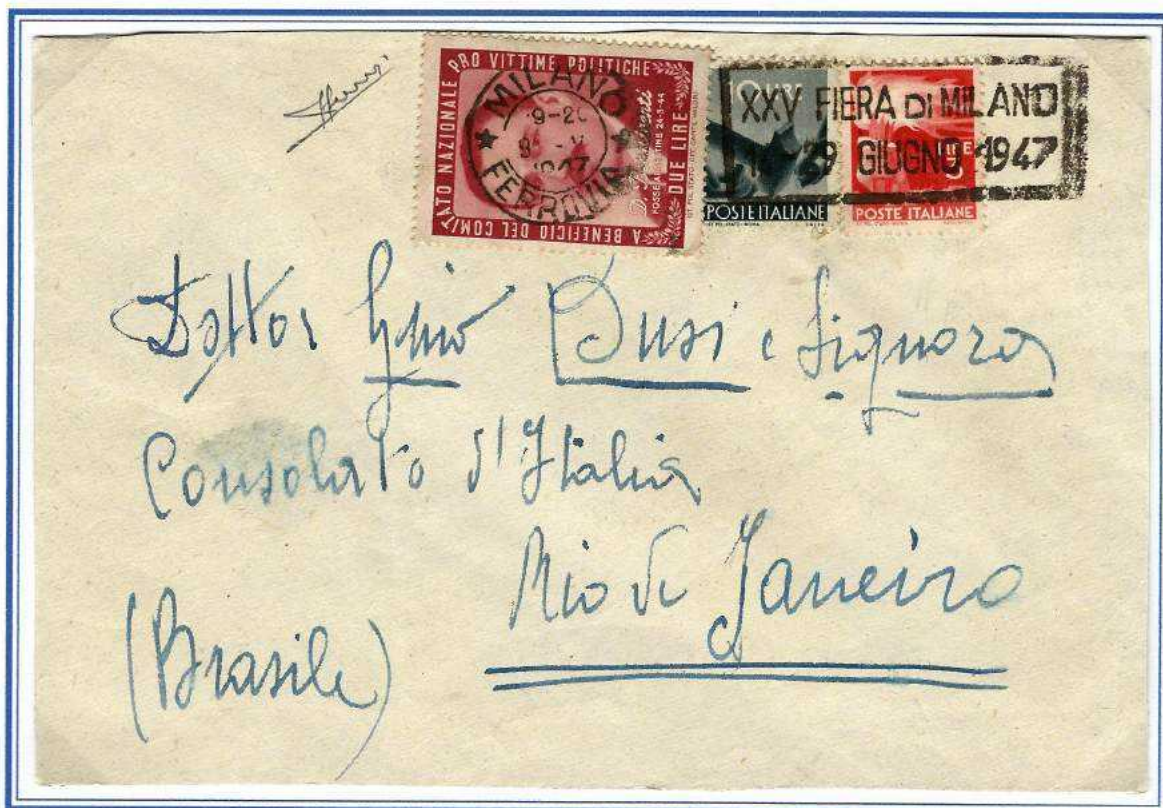 A BENEFICIO DEL COMITATO NAZIONALE PRO VITTIME POLITICHE
FOSSE ARDEATINE 24-3-44
DUE LIRE
MILANO
9-20
1947
FERROVIA
POSTE ITALIANE
LIRE
POSTE ITALIANE
XXV FIERA DI MILANO
29 GIUGNO 1947
Dottor Gino Dusi e Signora
Consolato d'Italia
Rio de Janeiro
(Brasile)